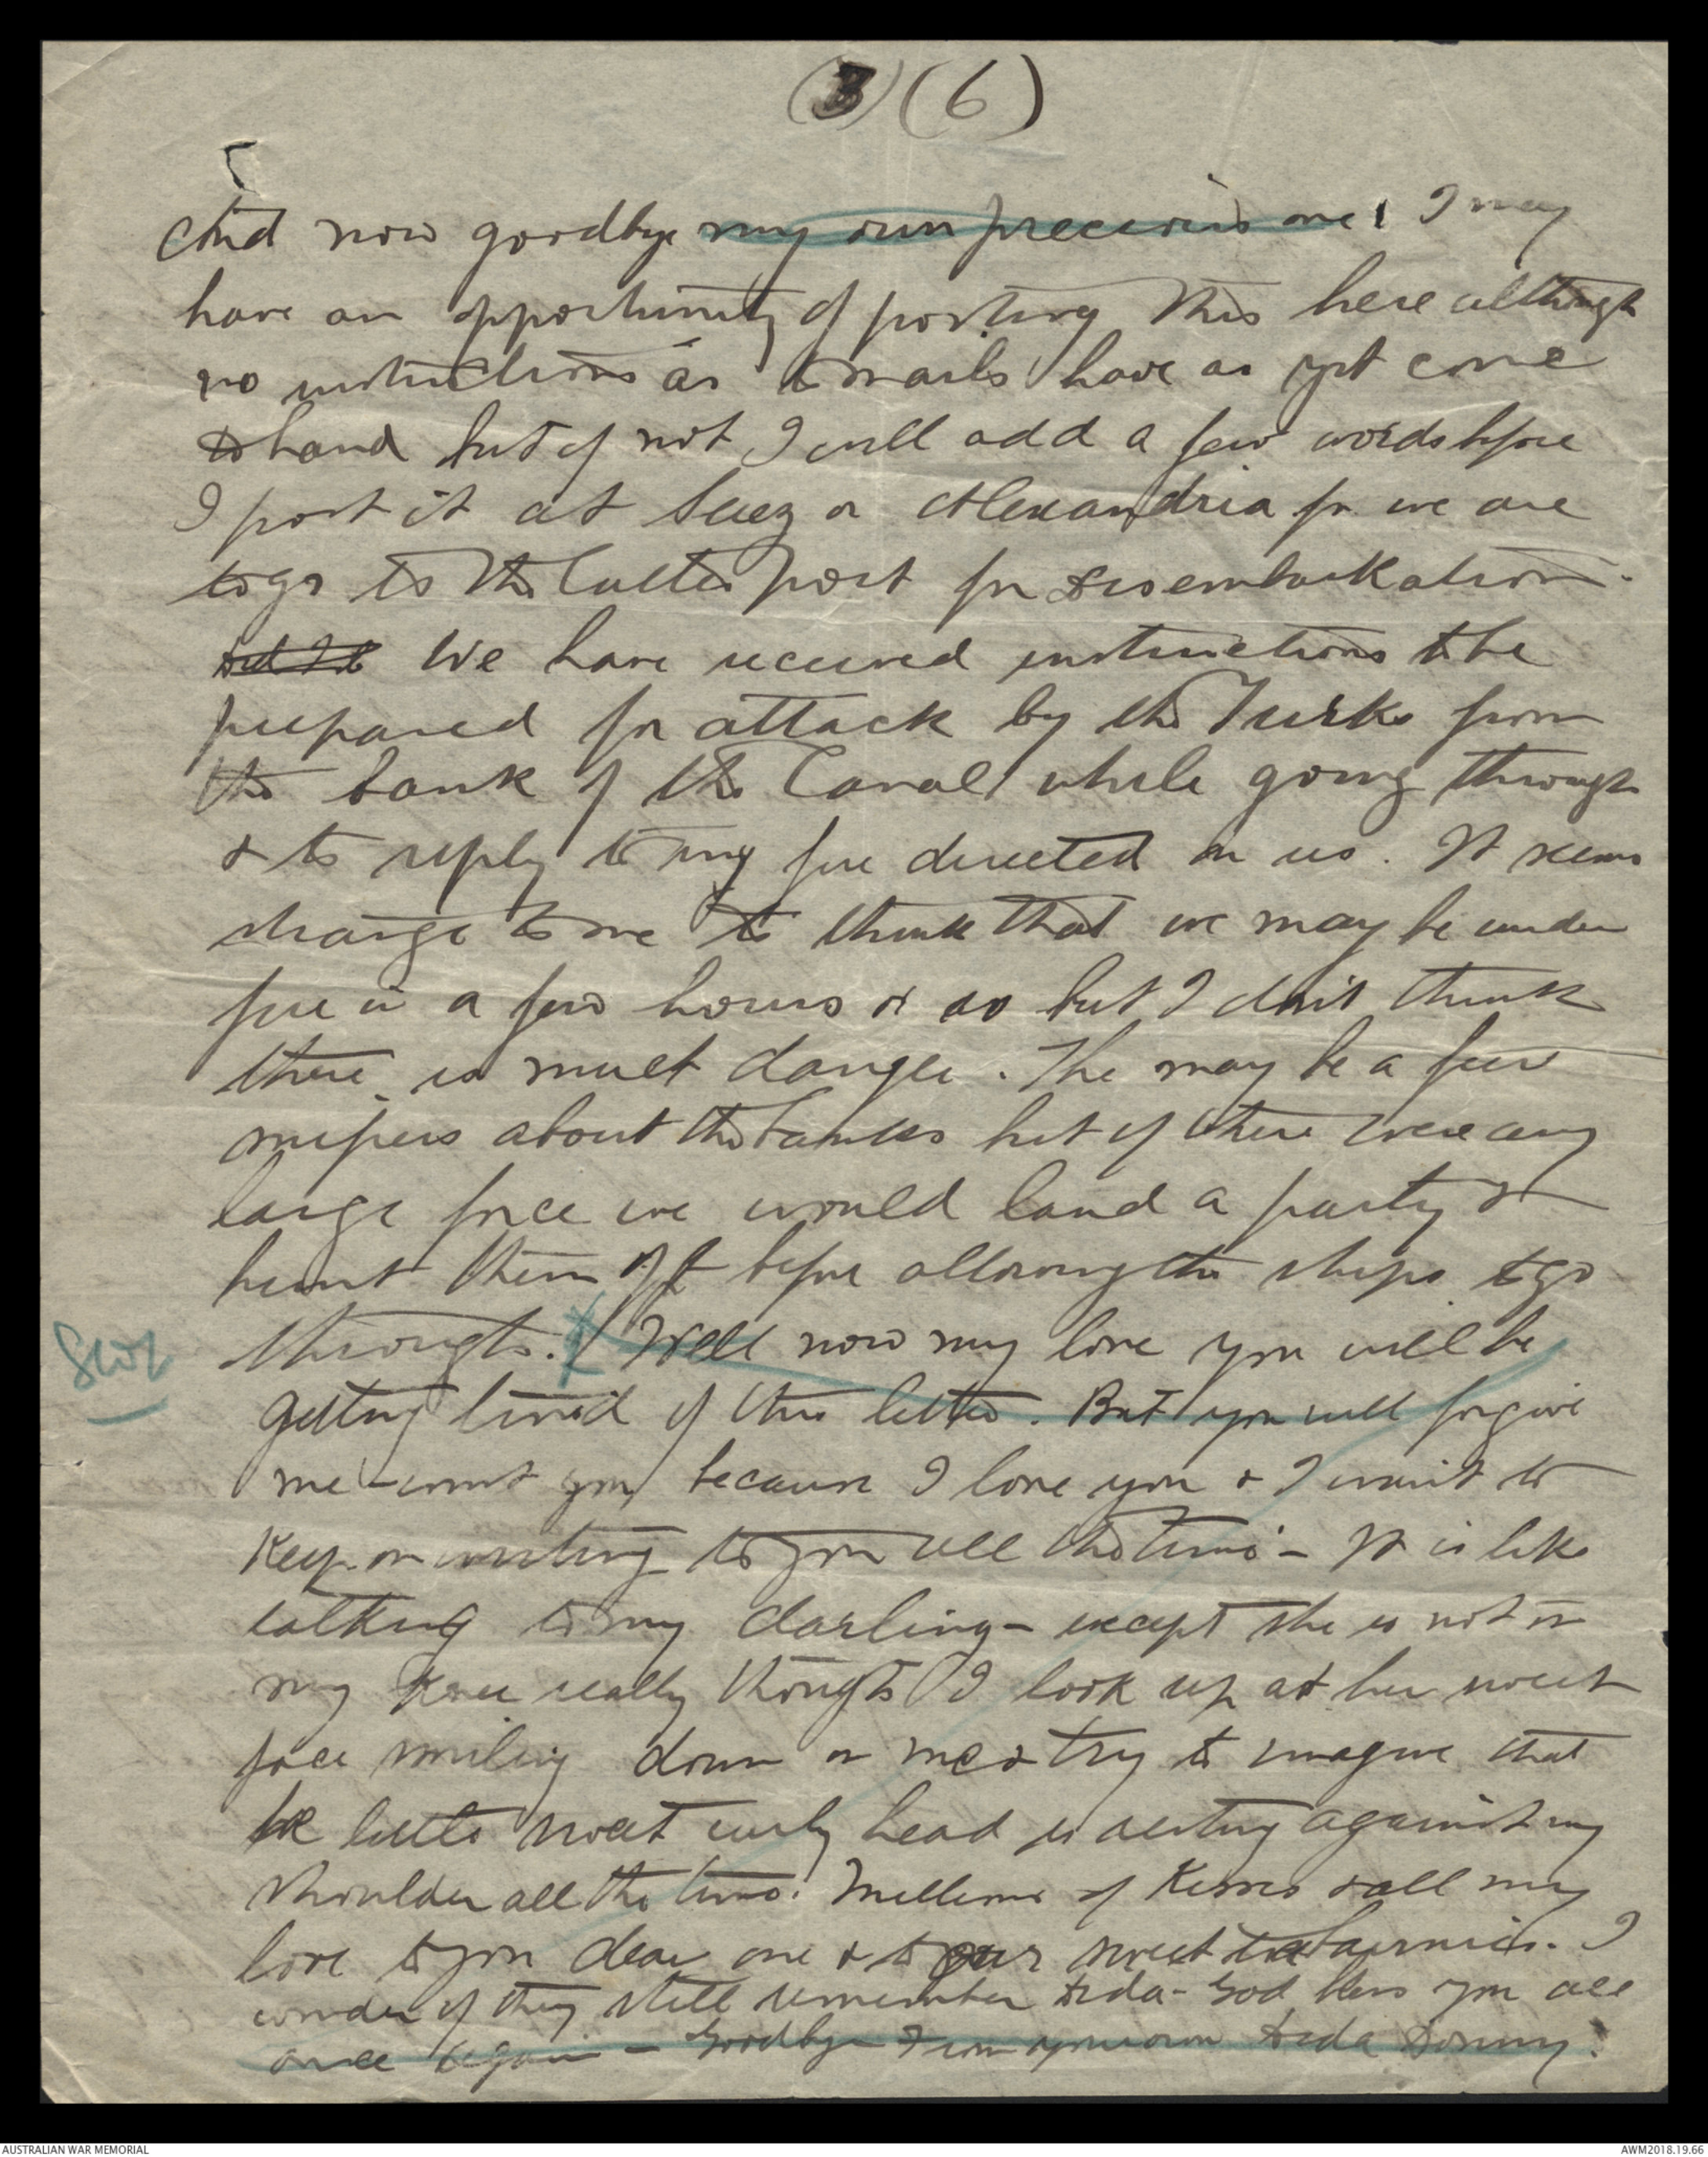 (3) (6)
And now goodbye my own precious one! I may
have an opportunity of posting this here although
no instructions as to mails have as yet come
to hand but if not I will add a few words before
I post it at Suez or Alexandria for we are
to go to the latter port for disembarkation.
We have received instructions to be
prepared for attack by the Turks from
the bank of the Canal while going through
& to reply to any fire directed on us. It seems
strange to me to think that we may be under
fire in a few hours or so but I don't think
there is much danger. The may be a few
snipers about the banks but if there were any
large force we would land a party &
hunt them off before allowing the ships to go
through. Well now my love you will be
Slot
getting tired of this letter. But you will forgive
me - wont you because I love you & I want to
keep on writing to you all the time - It is like
talking to my darling - except she is not on
my knee really though I look up at her sweet
face smiling down on me & try to imagine that
little sweet curly head is resting against my
shoulder all the time. Millions of kisses & all my
love to you dear one & to our sweet I
wonder if they still remember Dida - God bless you all
once again - Goodbye from your own Dida Sonny.
AUSTRALIAN WAR MEMORIAL
AWM2018.19.66